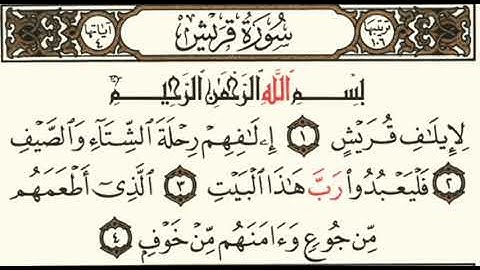 ترتيبها ١٠٦ سُورَةُ قُرَيْشٍ آياتها ٤
بِسْمِ اللَّهِ الرَّحْمَٰنِ الرَّحِيمِ
لِإِيلَٰفِ قُرَيْشٍ ١ إِۦلَٰفِهِمْ رِحْلَةَ الشِّتَآءِ وَالصَّيْفِ
٢ فَلْيَعْبُدُوا۟ رَبَّ هَٰذَا الْبَيْتِ ٣ الَّذِىٓ أَطْعَمَهُم
مِّن جُوعٍ وَءَامَنَهُم مِّنْ خَوْفٍۭ ٤